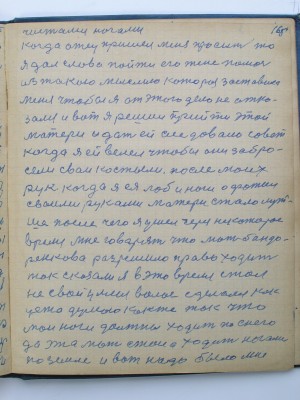 чистами ногами 165
когда отец пришел меня просит то
я дал слово пойти его жене помог
из такою мыслию которая заставила
меня чтобы я от этого дело не отка-
зали и вот я решил прийти этой
матери и дат ей следовало совет
когда я ей велел чтобы они забро-
сели сваи костыли. после моих
рук когда я ея лоб и ноги
своими руками матери стало луч-
ше после чего я ушел через некоторое
время мне говарят что мат банда-
ренкова разрешило право ходит
так сказали я в это время стал
не свой у мен волос сделался как
то так что
мои ноги должны ходит по снегу
да эта мат стала ходит ногами
по земле и вот нады было мне